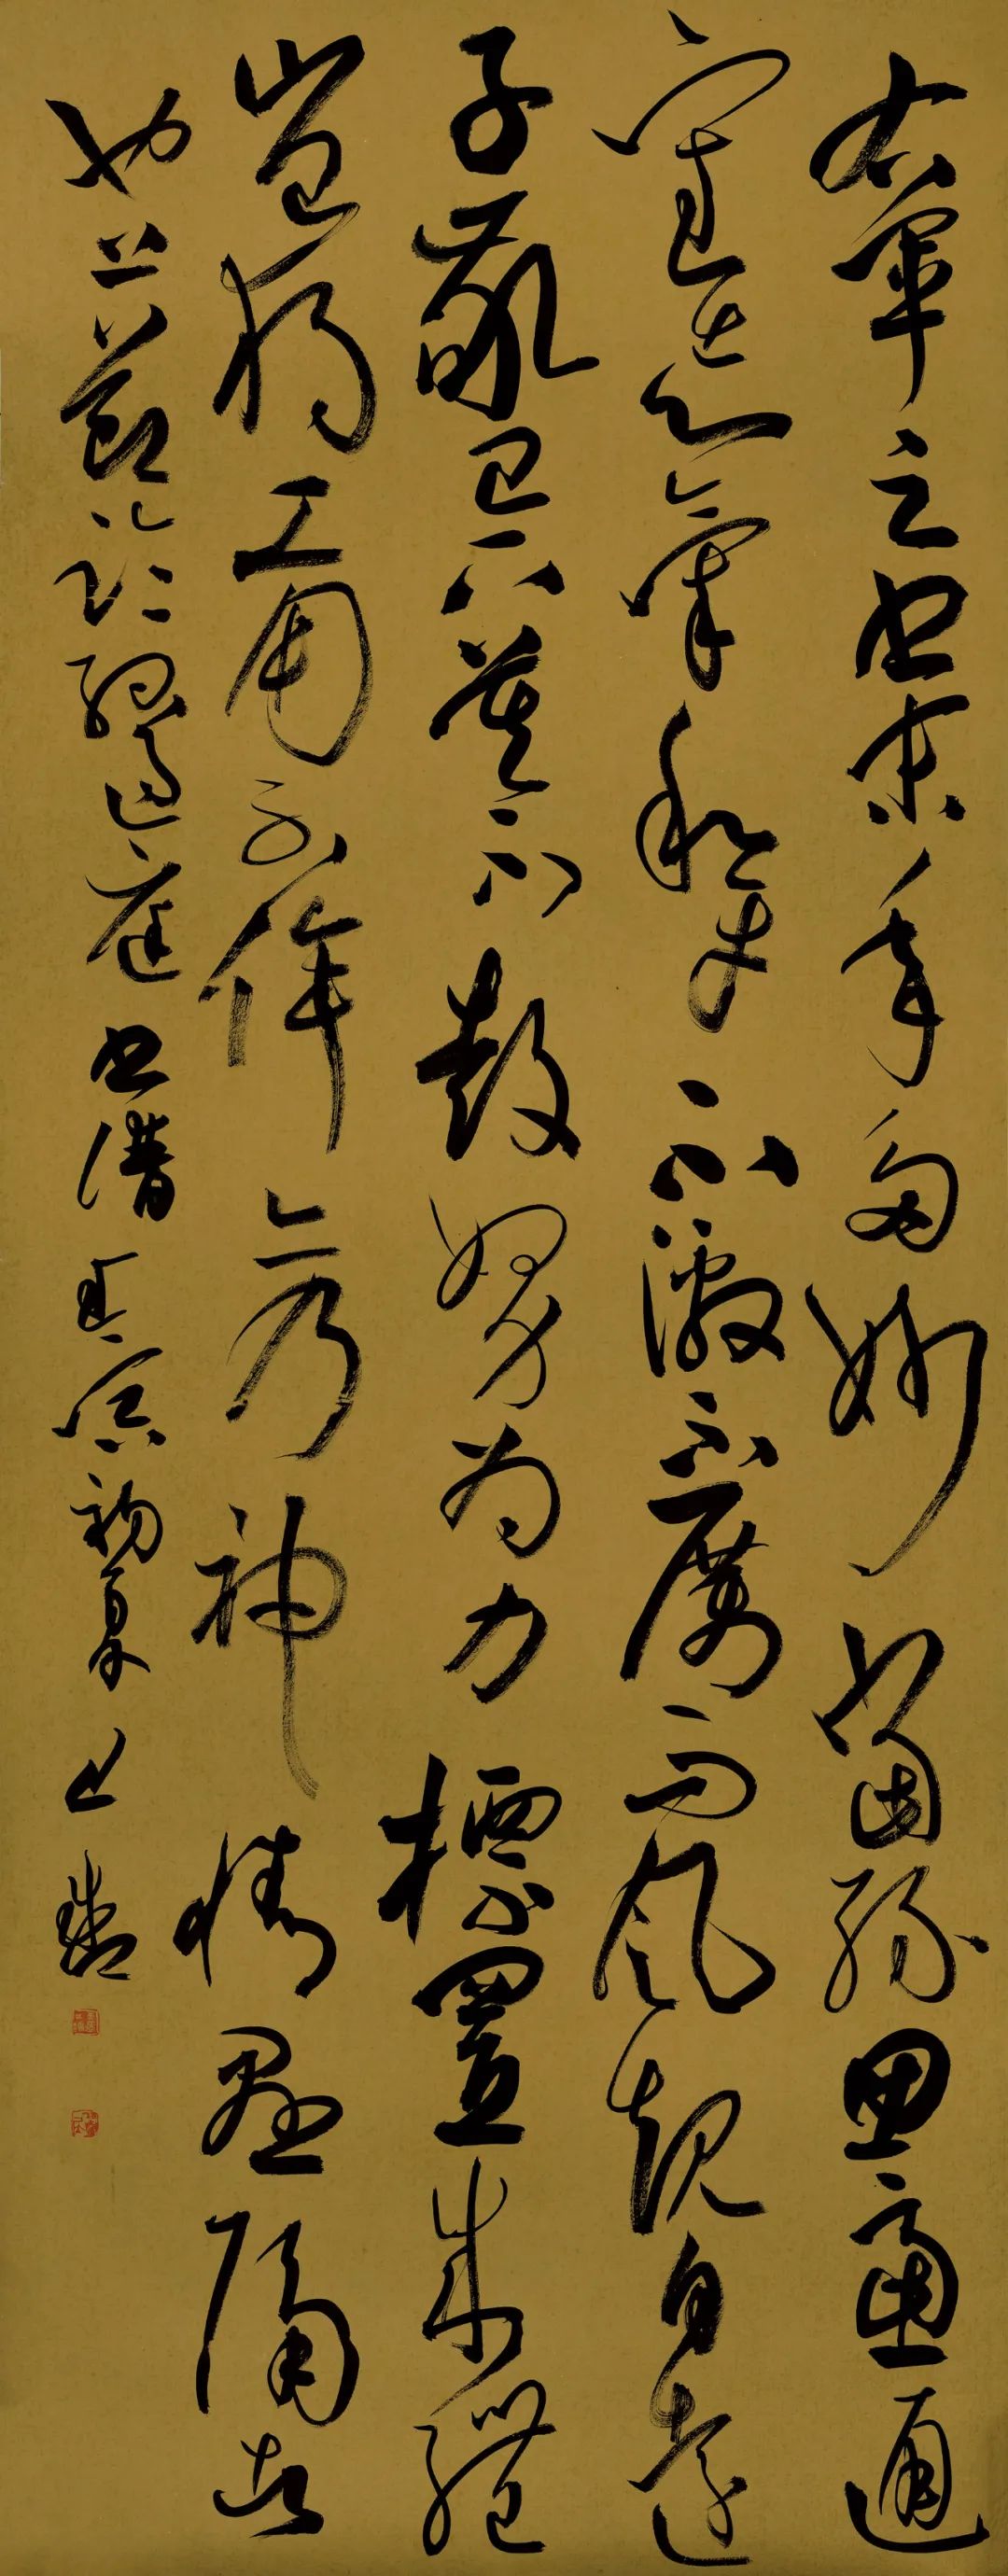 右軍之書末年多妙當緣思慮通
審志氣和平不激不厲而風規自遠
子敬已下莫不鼓努為力標置成體
豈獨工用不侔亦乃神情懸隔者
也上節臨孫過庭書譜寅初夏